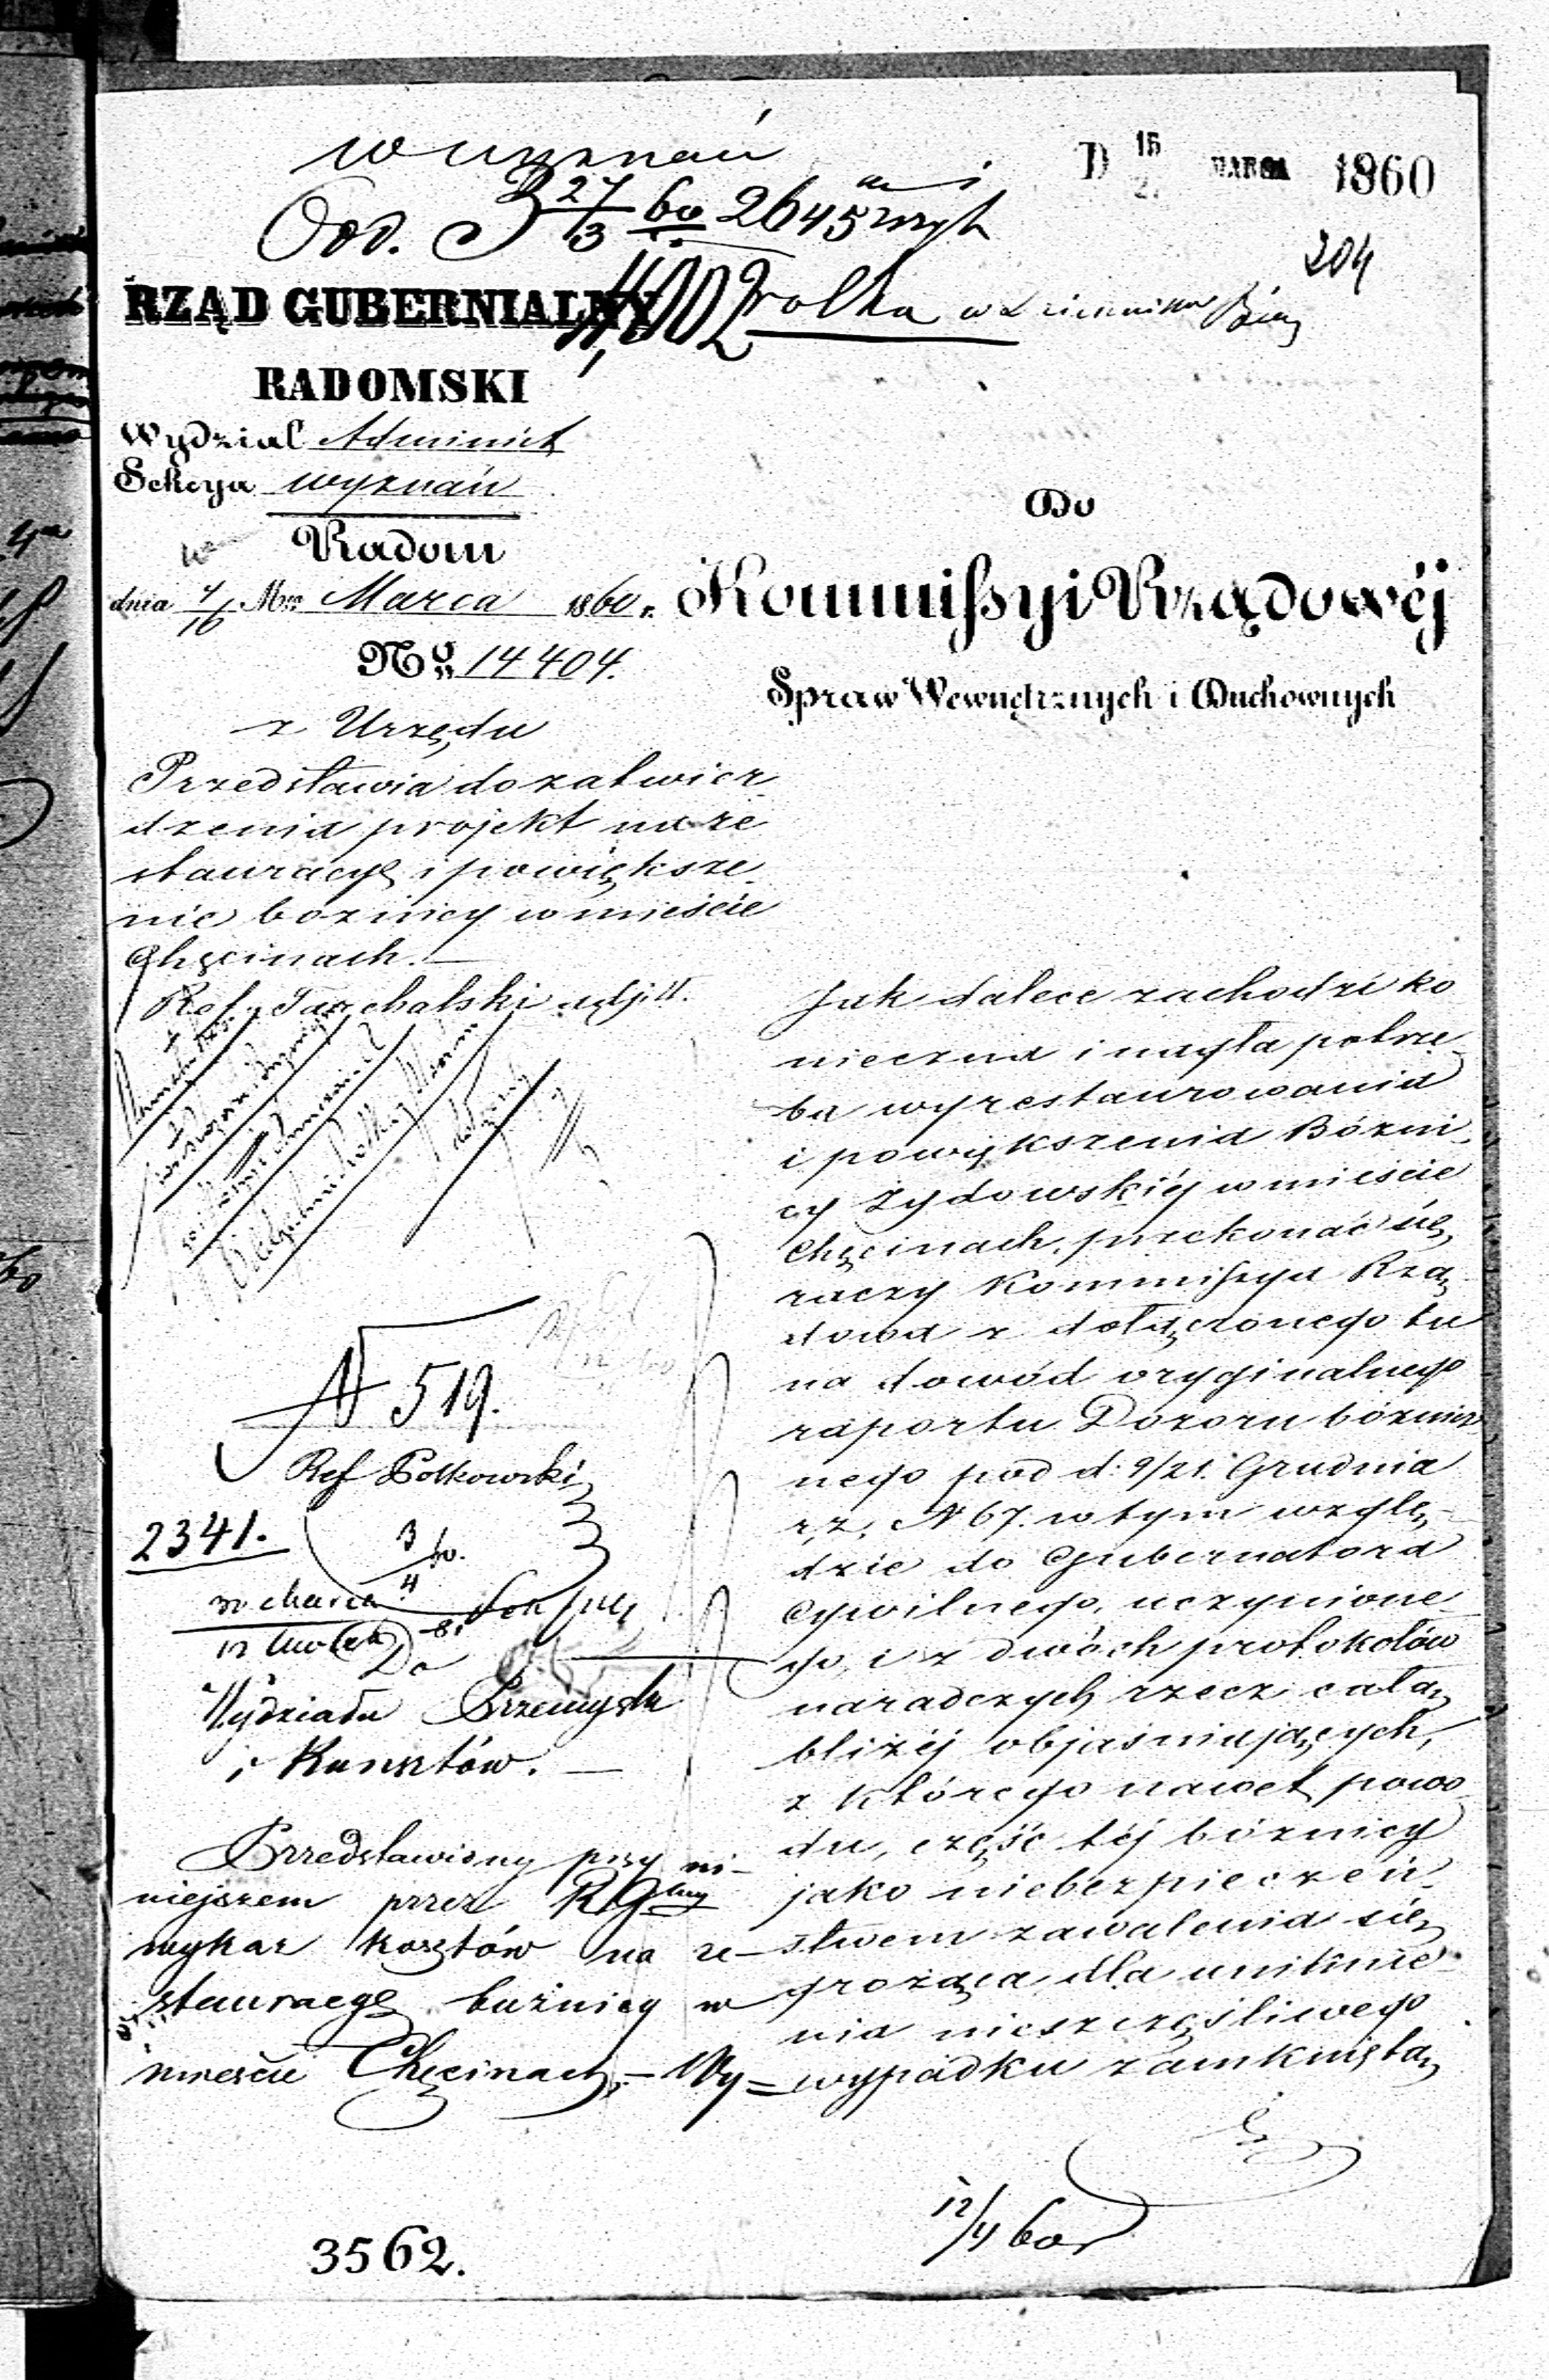 wyznań
D 15 MARCA 1860
Odd. 3 27/3 60 2645 wyzn
204
RZĄD GUBERNIALNY
11,002 Wolka w dzienniku
RADOMSKI
Wydział Administ
Sekcya wyznań
w Radom
dnia 4/16 M. Marca 1860 r.
No 14404.
Do
Kommissyi Rządowéj
Spraw Wewnętrznych i Duchownych
z Urzędu
Przedstawia do zatwier
dzenia projekt na re
stauracyę i powiększe
nie bóznicy w mieście
Chęcinach. —
Ref. Tuchalski adjt.
N 519.
Ref Połkowski
2341.
3/4 60.
30 marca
Do
Wydziału Przemysłu
i Kunsztów. —
Przedstawiony przy ni-
niejszem przez RGlny
wykaz kosztów na re-
stauracyę bużnicy w
mieście Chęcinach, — Wy=
Jak dalece zachodzi ko
nieczna i nagła potrze
ba wyrestaurowania
i powiększenia Bózni
cy Żydowskiéj w mieście
Chęcinach, przekonać się
raczy Kommissya Rzą
dowa z dołączonego tu
na dowód oryginalnego
raportu Dozoru bóżnicz
nego pod d: 9/21. Grudnia
r, z, N 67. w tym wzglę
dzie do Gubernatora
Cywilnego, uczynione
go, i z dwóch protokołów
naradczych rzecz całą
bliżéj objaśniających,
z którego nawet powo
du, część téj bóznicy
jako niebezpieczeń
stwem zawalenia się
grożąca, dla uniknie
nia nieszczęśliwego
wypadku zamkniętą
12/4 60
3562.